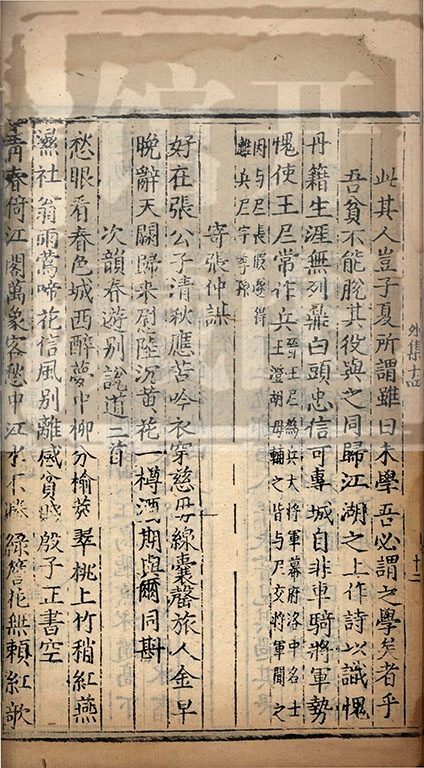 此其人豈子夏所謂雖曰未學吾必謂之學矣者乎
吾貧不能脫其役與之同歸江湖之上作詩以識愧
丹籍生涯無列鼎白頭忠信可專城自非車騎將軍勢
愧使王尼常作兵
晉王尼為兵大將軍幕府洛中名士
王澄胡母輔之皆与尼交將軍聞之
因与尼長假遂得
離兵尼字孝孫
寄張仲謀
好在張公子清秋應苦吟衣穿慈母線囊罄旅人金早
晚辭天闕歸来尉陸沉黄花一樽酒期與爾同斟
次韻春遊别說道二首
愁眼看春色城西醉夢中柳分榆莢翠桃上竹稍紅燕
濕社翁雨鶯啼花信風别離感貧賤殷子正書空
青春倚江閣萬象客愁中江水不勝綠簷花無賴紅歌
外集十四
十二